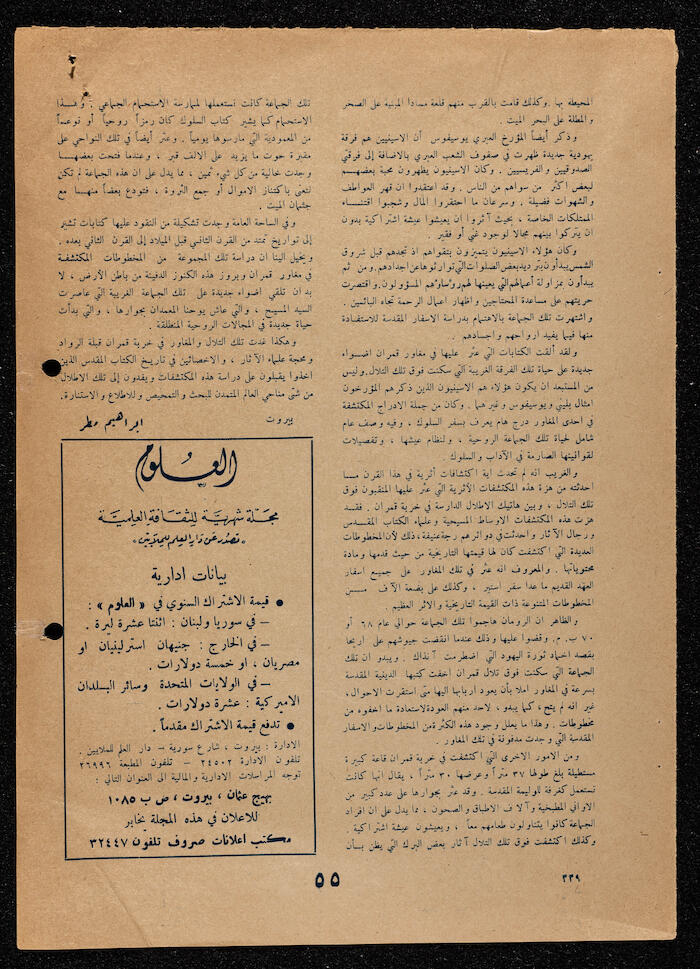 المحيطه بها . وكذلك قامت بالقرب منهم قلعة مسادا المبنية على الصخر
والمطلة على البحر الميت .
وذكر أيضاً المؤرخ العبري يوسيفوس أن الاسينيين هم فرقة
يهودية جديدة ظهرت في صفوف الشعب العبري بالاضافة إلى فرقتي
الصدوقيين والفريسيين . وكان الاسينيون يظهرون محبة بعضهم
لبعض اكثر من سواهم من الناس . وقد اعتقدوا ان قهر العواطف
والشهوات فضيلة . وسرعان ما احتقروا المال وشجبوا اقتناء
الممتلكات الخاصة ، بحيث آثروا ان يعيشوا عيشة اشتراكية بدون
ان يتركوا بينهم مجالا لوجود غني أو فقير .
وكان هؤلاء الاسينيون يتميزون بتقواهم اذ تجدهم قبل شروق
الشمس يبدأون بترديد بعض الصلوات التي توارثوها عن اجدادهم . ومن ثم
يبدأون بمزاولة أعمالهم التي يعينها لهم رؤساؤهم المسؤولون . واقتصرت
حريتهم على مساعدة المحتاجين واظهار اعمال الرحمة تجاه البائسين .
واشتهرت تلك الجماعة بالاهتمام بدراسة الاسفار المقدسة للاستفادة
منها فيما يفيد ارواحهم واجسادهم .
ولقد ألقت الكتابات التي عثر عليها في مغاور قمران اضواء
جديدة على حياة تلك الفرقة الغريبة التي سكنت فوق تلك التلال . وليس
من المستبعد ان يكون هؤلاء هم الاسينيون الذين ذكرهم المؤرخون
امثال بليني ويوسيفوس وغيرهما . وكان من جملة الادراج المكتشفة
في احدى المغاور درج هام يعرف بسفر السلوك ، وفيه وصف عام
شامل لحياة تلك الجماعة الروحية ، ولنظام عيشها ، وتفصيلات
لقوانينها الصارمة في الآداب والسلوك .
والغريب انه لم تحدث اية اكتشافات أثرية في هذا القرن مما
احدثته من هزة هذه المكتشفات الأثرية التي عثر عليها المنقبون فوق
تلك التلال ، وبين هاتيك الاطلال الدارسة في خربة قمران . فقد
هزت هذه المكتشفات الاوساط المسيحية وعلماء الكتاب المقدس
ورجال الآثار واحدثت في دوائرهم رجة عنيفة ، ذلك لأن المخطوطات
العديدة التي اكتشفت كان لها قيمتها التاريخية من حيث قدمها ومادة
محتوياتها . والمعروف انه عثر في تلك المغاور على جميع اسفار
العهد القديم ما عدا سفر استير ، وكذلك على بضعة آلاف من
المخطوطات المتنوعة ذات القيمة التاريخية والاثر العظيم .
والظاهر ان الرومان هاجموا تلك الجماعة حوالي عام ٦٨ أو
٧٠ ب . م . وقضوا عليها وذلك عندما انقضت جيوشهم على اريحا
بقصد اخماد ثورة اليهود التي اضطرمت آنذاك . ويبدو ان تلك
الجماعة التي سكنت فوق تلال قمران اخفت كتبها الدينية المقدسة
بسرعة في المغاور املا بأن يعود اربابها اليها متى استقرت الاحوال ،
غير انه لم يتح ، كما يبدو ، لاحد منهم العودة لاستعادة ما اخفوه من
مخطوطات . وهذا ما يعلل وجود هذه الكثرة من المخطوطات والاسفار
المقدسة التي وجدت مدفونة في تلك المغاور .
ومن الامور الاخرى التي اكتشفت في خربة قمران قاعة كبيرة
مستطيلة بلغ طولها ٣٧ متراً وعرضها ٣٠ متراً ، يقال انها كانت
تستعمل كغرفة للوليمة المقدسة . وقد عثر بجوارها على عدد كبير من
الاواني المطبخية وآلاف الاطباق والصحون ، مما يدل على ان افراد
الجماعة كانوا يتناولون طعامهم معاً ، ويعيشون عيشة اشتراكية .
وكذلك اكتشفت فوق تلك التلال آثار بعض البرك التي يظن بأن
تلك الجماعة كانت تستعملها لممارسة الاستحمام الجماعي . وهذا
الاستحمام كما يشير كتاب السلوك كان رمزاً روحياً أو نوعماً
من المعمودية التي مارسوها يومياً . وعثر أيضاً في تلك النواحي على
مقبرة حوت ما يزيد على الالف قبر ، وعندما فتحت بعضها
وجدت خالية من كل شيء ثمين ، مما يدل على ان هذه الجماعة لم تكن
تعنى باكتناز الاموال أو جمع الثروة ، فتودع بعضاً منها مع
جثمان الميت .
وفي الساحة العامة وجدت تشكيلة من النقود عليها كتابات تشير
إلى تواريخ تمتد من القرن الثاني قبل الميلاد إلى القرن الثاني بعده .
ويخيل الينا ان دراسة تلك المجموعة من المخطوطات المكتشفة
في مغاور قمران وبروز هذه الكنوز الدفينة من باطن الأرض ، لا
بد ان تلقي اضواء جديدة على تلك الجماعة الغريبة التي عاصرت
السيد المسيح ، والتي عاش يوحنا المعمدان بجوارها ، والتي بدأت
حياة جديدة في المجالات الروحية المنطلقة .
وهكذا غدت تلك التلال والمغاور في خربة قمران قبلة الرواد
ومحجة علماء الآثار ، والاخصائيين في تاريخ الكتاب المقدس الذين
اخذوا يقبلون على دراسة هذه المكتشفات ويفدون إلى تلك الاطلال
من شتى مناحي العالم المتمدن للبحث والتمحيص وللاطلاع والاستنارة .
بيروت ابراهيم مطر
العلوم
مجلة شهرية للثقافة العلمية
« تصدر عن دار العلم للملايين »
بيانات ادارية
● قيمة الاشتراك السنوي في « العلوم » :
– في سوريا ولبنان : اثنتا عشرة ليرة .
– في الخارج : جنيهان استرلينيان او
مصريان ، او خمسة دولارات .
– في الولايات المتحدة وسائر البلدان
الاميركية : عشرة دولارات .
● تدفع قيمة الاشتراك مقدماً .
الادارة : بيروت ، شارع سورية – دار العلم للملايين .
تلفون الادارة ٢٤٥٠٢ – تلفون المطبعة ٢٦٩٩٦
توجه المراسلات الادارية والمالية الى العنوان التالي :
بهيج عثمان ، بيروت ، ص ب ١٠٨٥
للاعلان في هذه المجلة يخابر
مكتب اعلانات صروف تلفون ٣٢٤٤٧
٥٥
٣٣٩